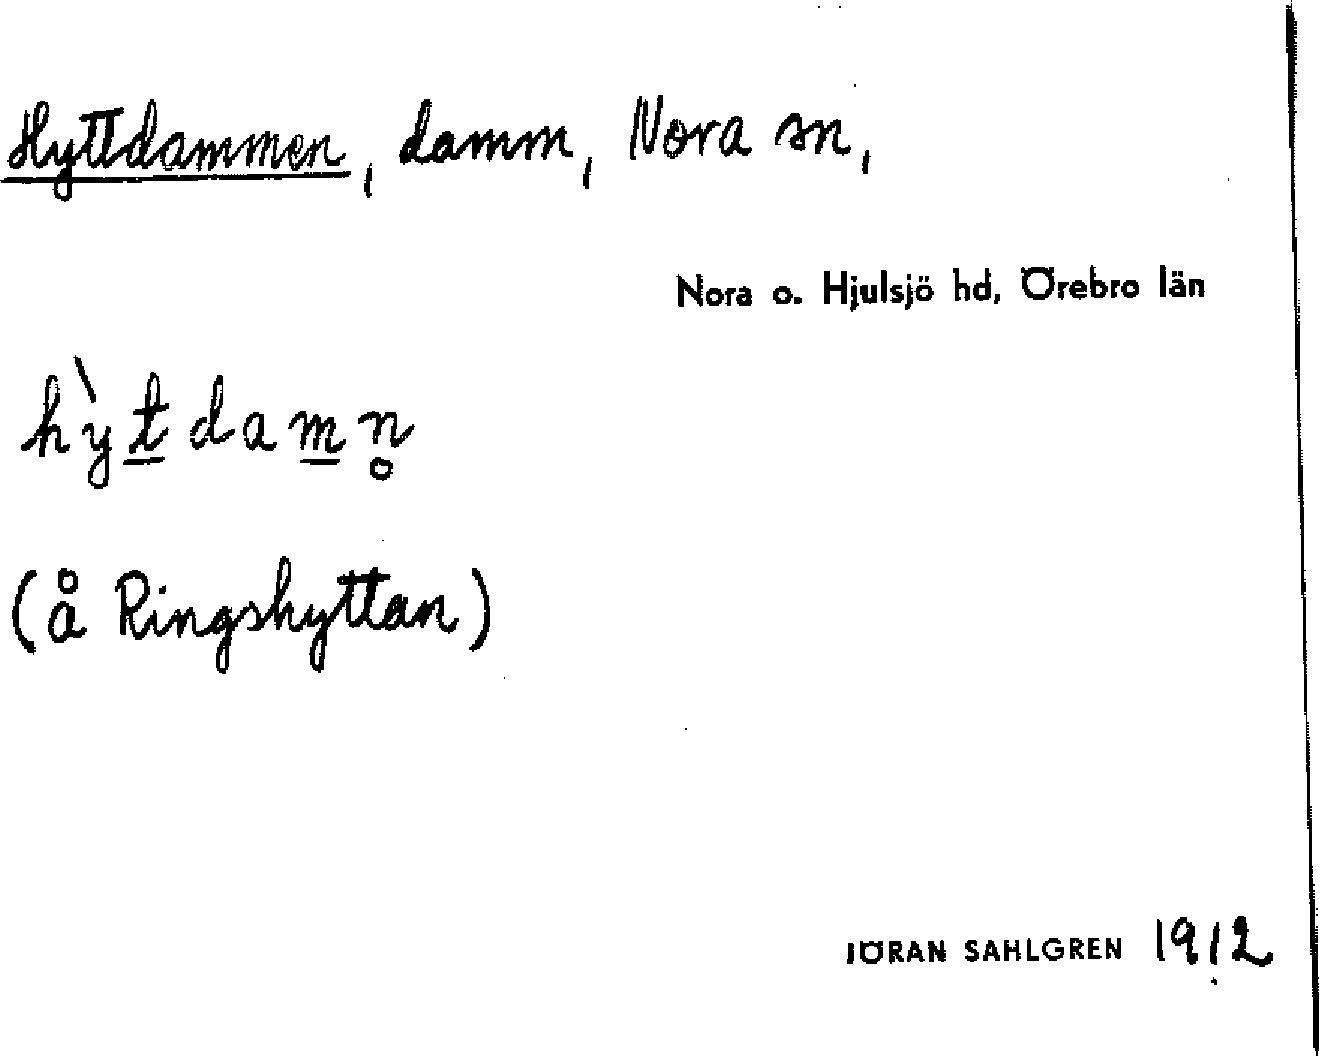 Hyttdammen, damm, Nora sn,
Nora o. Hjulsjö hd, Örebro län
hỳt̲dam̲n̥
(å Ringshyttan)
JÖRAN SAHLGREN 1912